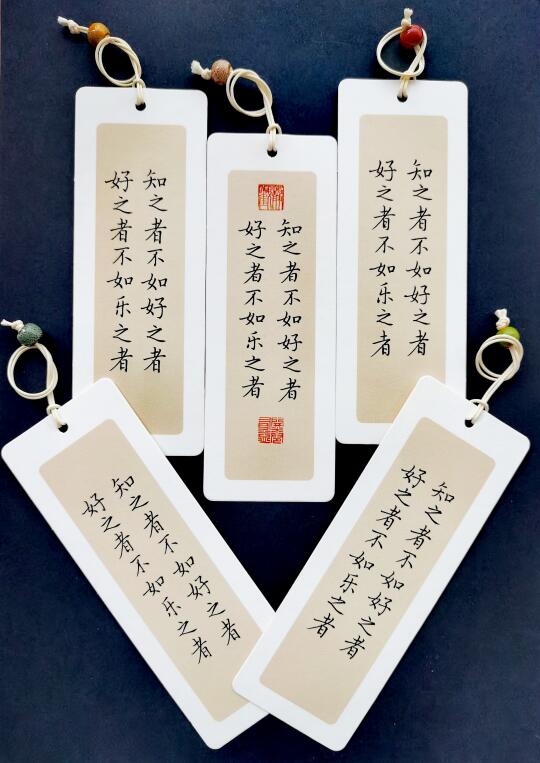 知之者不如好之者
好之者不如乐之者
知之者不如好之者
好之者不如乐之者
知之者不如好之者
好之者不如乐之者
知之者不如好之者
好之者不如乐之者
知之者不如好之者
好之者不如乐之者